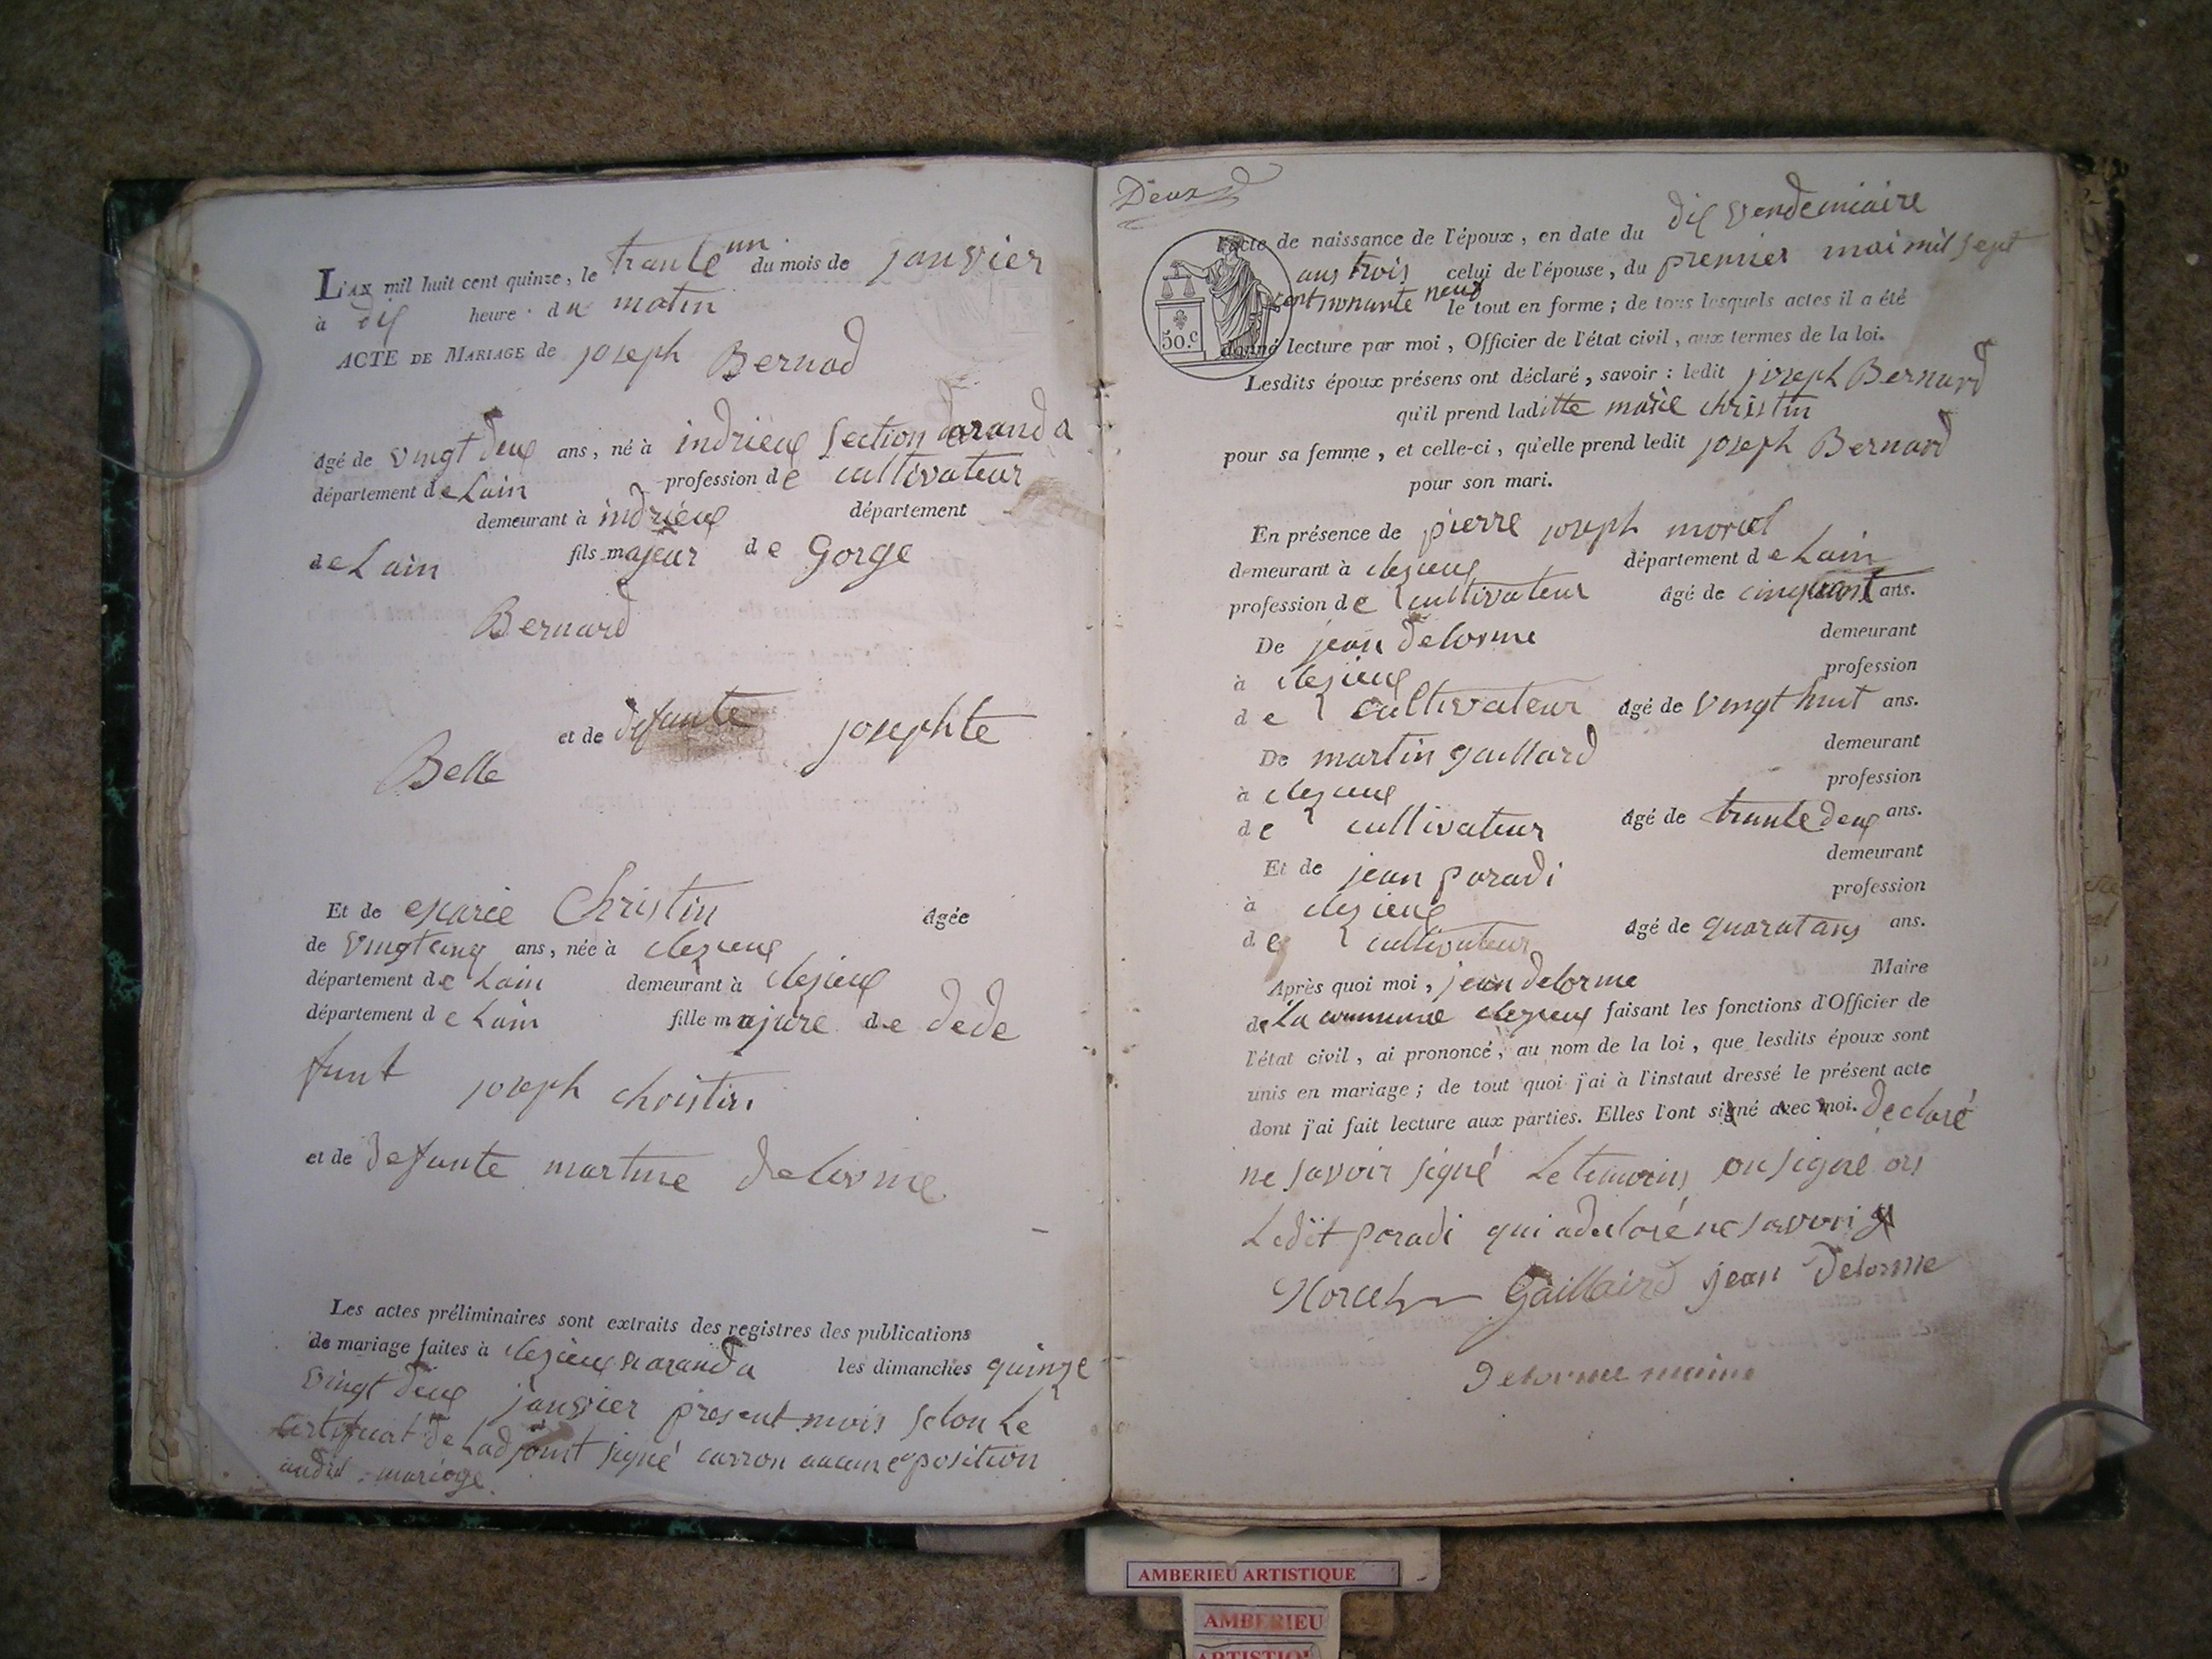 L'AN mil huit cent quinze, le trante un du mois de janvier
à dix heure du matin
ACTE DE MARIAGE de joseph Bernad
âgé de vingt deux ans, né à indrieux section daranda
département de Lain profession de cultivateur
demeurant à indrieux département
de Lain fils majeur de Gorge
Bernard
et de defunte josephte
Belle
Et de Marie Christin âgée
de vingt cinq ans, née à clezieux
département de Lain demeurant à clezieux
département de Lain fille majure de dede
funt joseph christin
et de defunte martine delorme
Les actes préliminaires sont extraits des registres des publications
de mariage faites à clezieux aranda les dimanches quinze
vingt deux janvier present mois selon Le
certificat de Ladjoint signé carron aucune oposition
audit mariage.
Deux
l'acte de naissance de l'époux, en date du dix vendemiaire
ans trois celui de l'épouse, du premier mai mil sept
cent nonante neuf le tout en forme; de tous lesquels actes il a été
donné lecture par moi, Officier de l'état civil, aux termes de la loi.
50.c
Lesdits époux présens ont déclaré, savoir: ledit joseph Bernard
qu'il prend laditte marie christin
pour sa femme, et celle-ci, qu'elle prend ledit joseph Bernard
pour son mari.
En présence de pierre joseph morcel
demeurant à clezieux département de Lain
profession de cultivateur âgé de cinquant ans.
De jean delorme demeurant
à clezieux profession
de cultivateur âgé de vingt huit ans.
De martin gaillard demeurant
à clezieux profession
de cultivateur âgé de trante deux ans.
Et de jean paradi demeurant
à clezieux profession
de cultivateur âgé de quarat ans ans.
Après quoi moi, jean delorme Maire
de La commune clezieux faisant les fonctions d'Officier de
l'état civil, ai prononcé, au nom de la loi, que lesdits époux sont
unis en mariage; de tout quoi j'ai à l'instaut dressé le présent acte
dont j'ai fait lecture aux parties. Elles l'ont signé avec moi. declaré
ne savoir signé Le temoins on signé ors
Ledit paradi qui a declaré ne savoir
Morcel Gaillaird jean Delorme
Delorme maire
AMBERIEU ARTISTIQUE
AMBERIEU
ARTISTIQUE